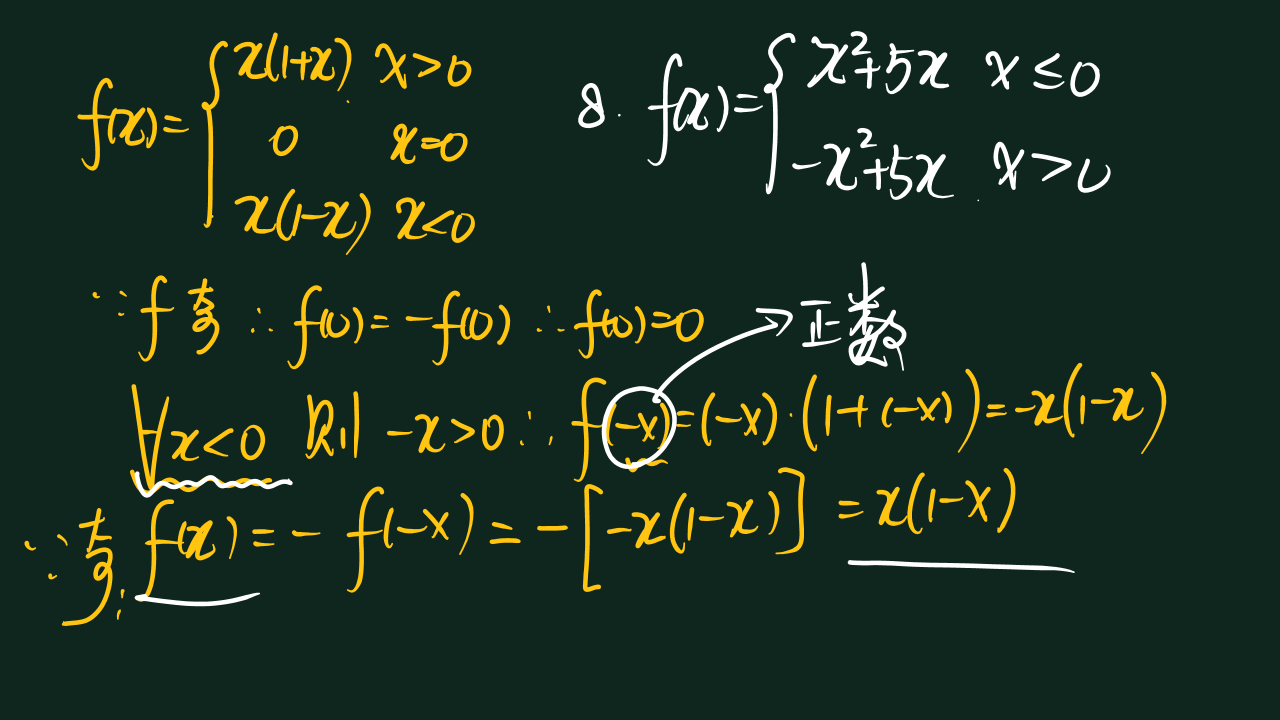 f(x)={ x(1+x) x>0
0 x=0
x(1-x) x<0
8. f(x)={ x²+5x x≤0
-x²+5x x>0
∵ f 奇 ∴ f(0)=-f(0) ∴ f(0)=0 正数
∀x<0 则 -x>0 ∴ f(-x)=(-x)·(1+(-x))=-x(1-x)
∵ 奇 ∴ f(x)=-f(-x)=-[-x(1-x)]=x(1-x)